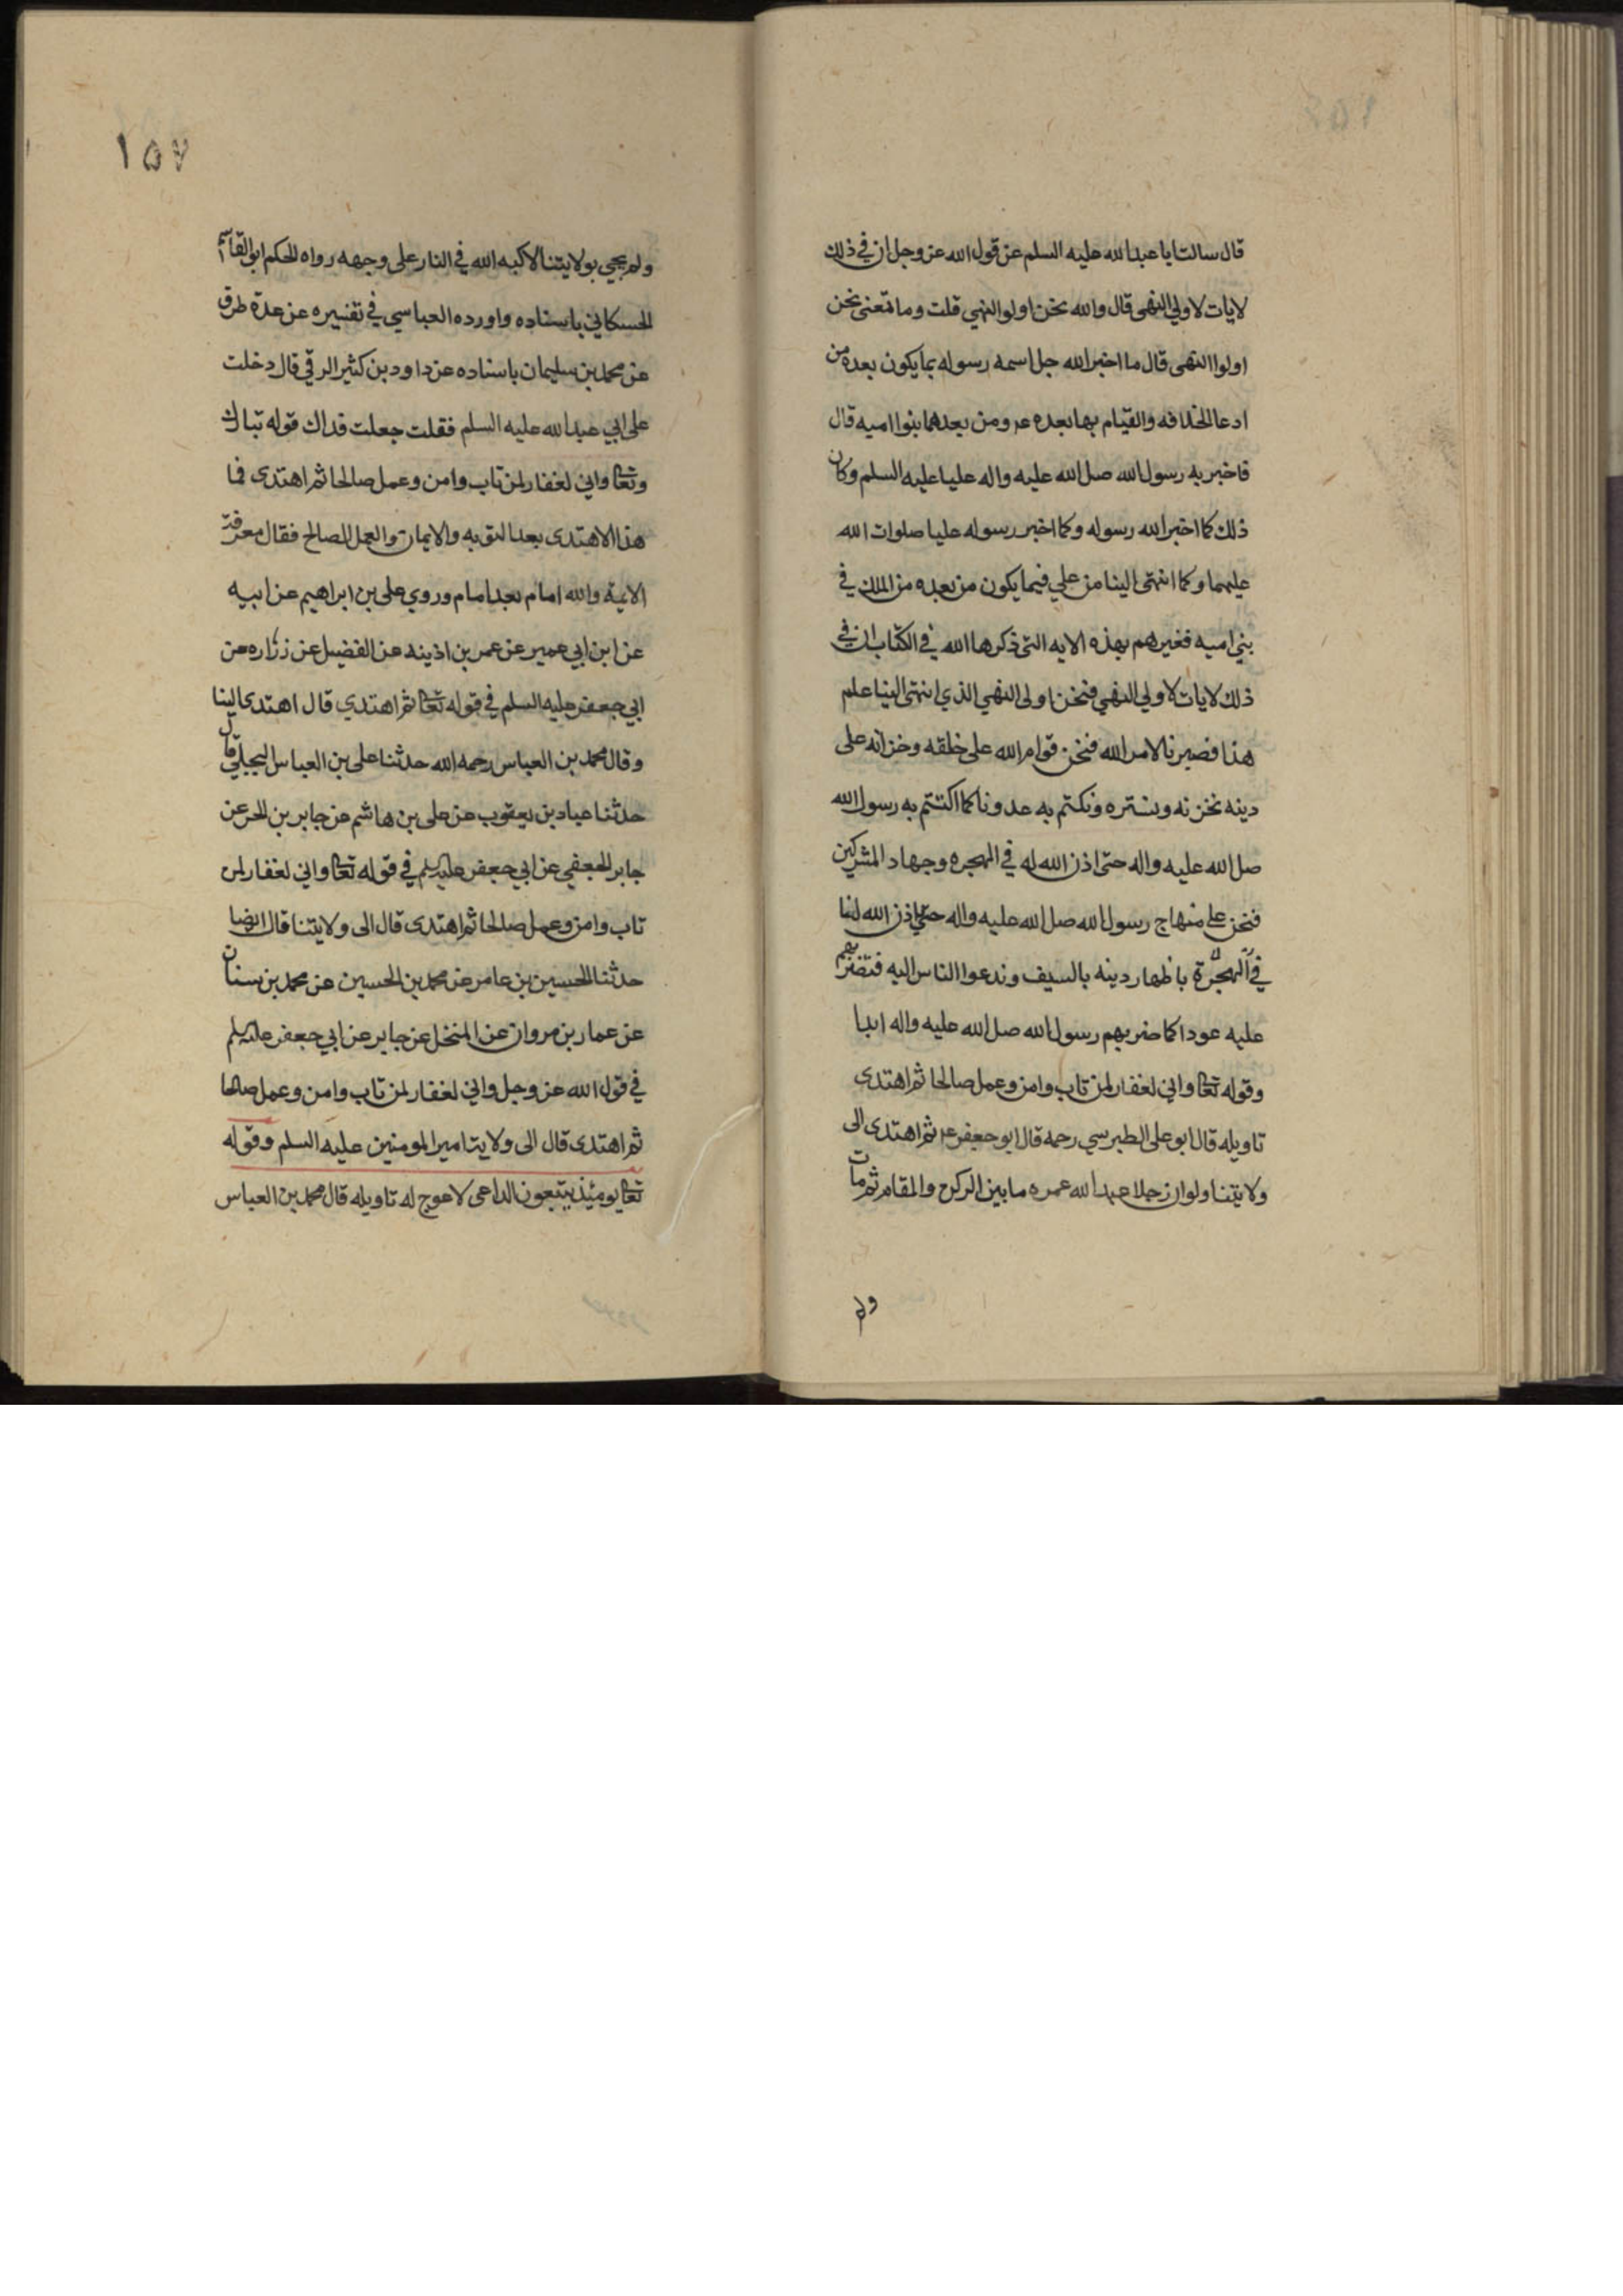 قال سالت ابا عبدالله عليه السلم عن قول الله عز وجل ان في ذلك
لايات لاولي النهى قال والله نحن اولوا النهي قلت وما تعنى نحن
اولوا النهى قال ما اخبر الله جل اسمه رسوله بما يكون بعده من
ادعا الخلافه والقيام بها بعده عم ومن بعدهما بنوا اميه قال
فاخبر به رسول الله صل الله عليه واله عليا عليه السلم وكان
ذلك كما اخبر الله رسوله وكما اخبر رسوله عليا صلوات الله
عليهما وكما انتهى الينا من علي فيما يكون من بعده من الملك في
بني اميه فغيرهم بهذه الايه التى ذكرها الله في الكتاب ان في
ذلك لايات لاولي النهي فنحن اولى النهي الذي انتهى الينا علم
هذا فصبرنا لامر الله فنحن قوام الله على خلقه وخزانه على
دينه نخزنه ونستره ونكتم به عدونا كما اكتتم به رسول الله
صل الله عليه واله حتى اذن الله له في الهجره وجهاد المشركين
فنحن على منهاج رسول الله صل الله عليه واله حتى اذن الله لنا
في الهجرة باظهار دينه بالسيف وندعوا الناس اليه فنضربهم
عليه عودا كما ضربهم رسول الله صل الله عليه واله ابدا
وقوله تعا واني لغفار لمن تاب وامن وعمل صالحا ثم اهتدى
تاويله قال ابو على الطبرسي رحمه قال ابو جعفر عم ثم اهتدى الى
ولايتنا ولو ان رجلا عبد الله عمره ما بين الركن والمقام ثم مات
ولم
١٥٧
ولم يجي بولايتنا الا كبه الله في النار على وجهه رواه الحكم ابو القاسم
الحسكاني باسناده واورده العباسي في تفسيره عن عدة طرق
عن محمد بن سليمان باسناده عن داود بن كثير الرقي قال دخلت
على ابي عبدالله عليه السلم فقلت جعلت فداك قوله تبارك
وتعا واني لغفار لمن تاب وامن وعمل صالحا ثم اهتدى فما
هذا الاهتدى بعد التوبه والايمان والعمل الصالح فقال معرفة
الايمة والله امام بعد امام وروي على بن ابراهيم عن ابيه
عن ابن ابي عمير عن عمر بن اذينه عن الفضيل عن زراره عن
ابي جعفر عليه السلم في قوله تعا ثم اهتدي قال اهتدى الينا
وقال محمد بن العباس رحمه الله حدثنا على بن العباس البجلي قال
حدثنا عباد بن يعقوب عن على بن هاشم عن جابر بن الحر عن
جابر الجعفي عن ابي جعفر عليه السلم في قوله تعا واني لغفار لمن
تاب وامن وعمل صالحا ثم اهتدى قال الى ولايتنا قال ايضا
حدثنا الحسين بن عامر عن محمد بن الحسين عن محمد بن سنان
عن عمار بن مروان عن المنخل عن جابر عن ابي جعفر عليه السلم
في قول الله عز وجل واني لغفار لمن تاب وامن وعمل صالحا
ثم اهتدى قال الى ولايت امير المومنين عليه السلم وقوله
تعا يومئذ يتبعون الداعى لا عوج له تاويله قال محمد بن العباس